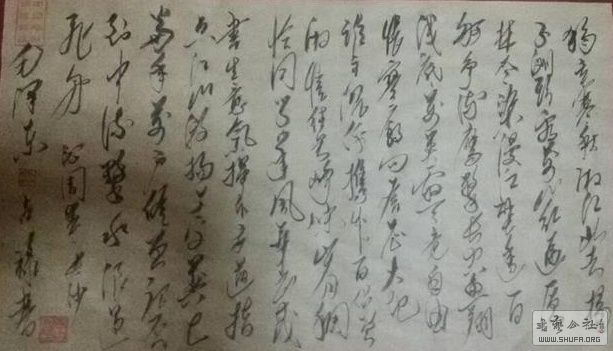 独立寒秋湘江北去橘
子洲头看万山红遍层
林尽染漫江碧透百
舸争流鹰击长空鱼翔
浅底万类霜天竞自由
怅寥廓问苍茫大地
谁主沉浮携来百侣曾
游忆往昔峥嵘岁月稠
恰同学少年风华正茂
书生意气挥斥方遒指
点江山激扬文字粪土
当年万户侯曾记否
到中流击水浪遏
飞舟 沁园春 长沙
毛泽东
书艺公社
WWW.SHUFA.ORG